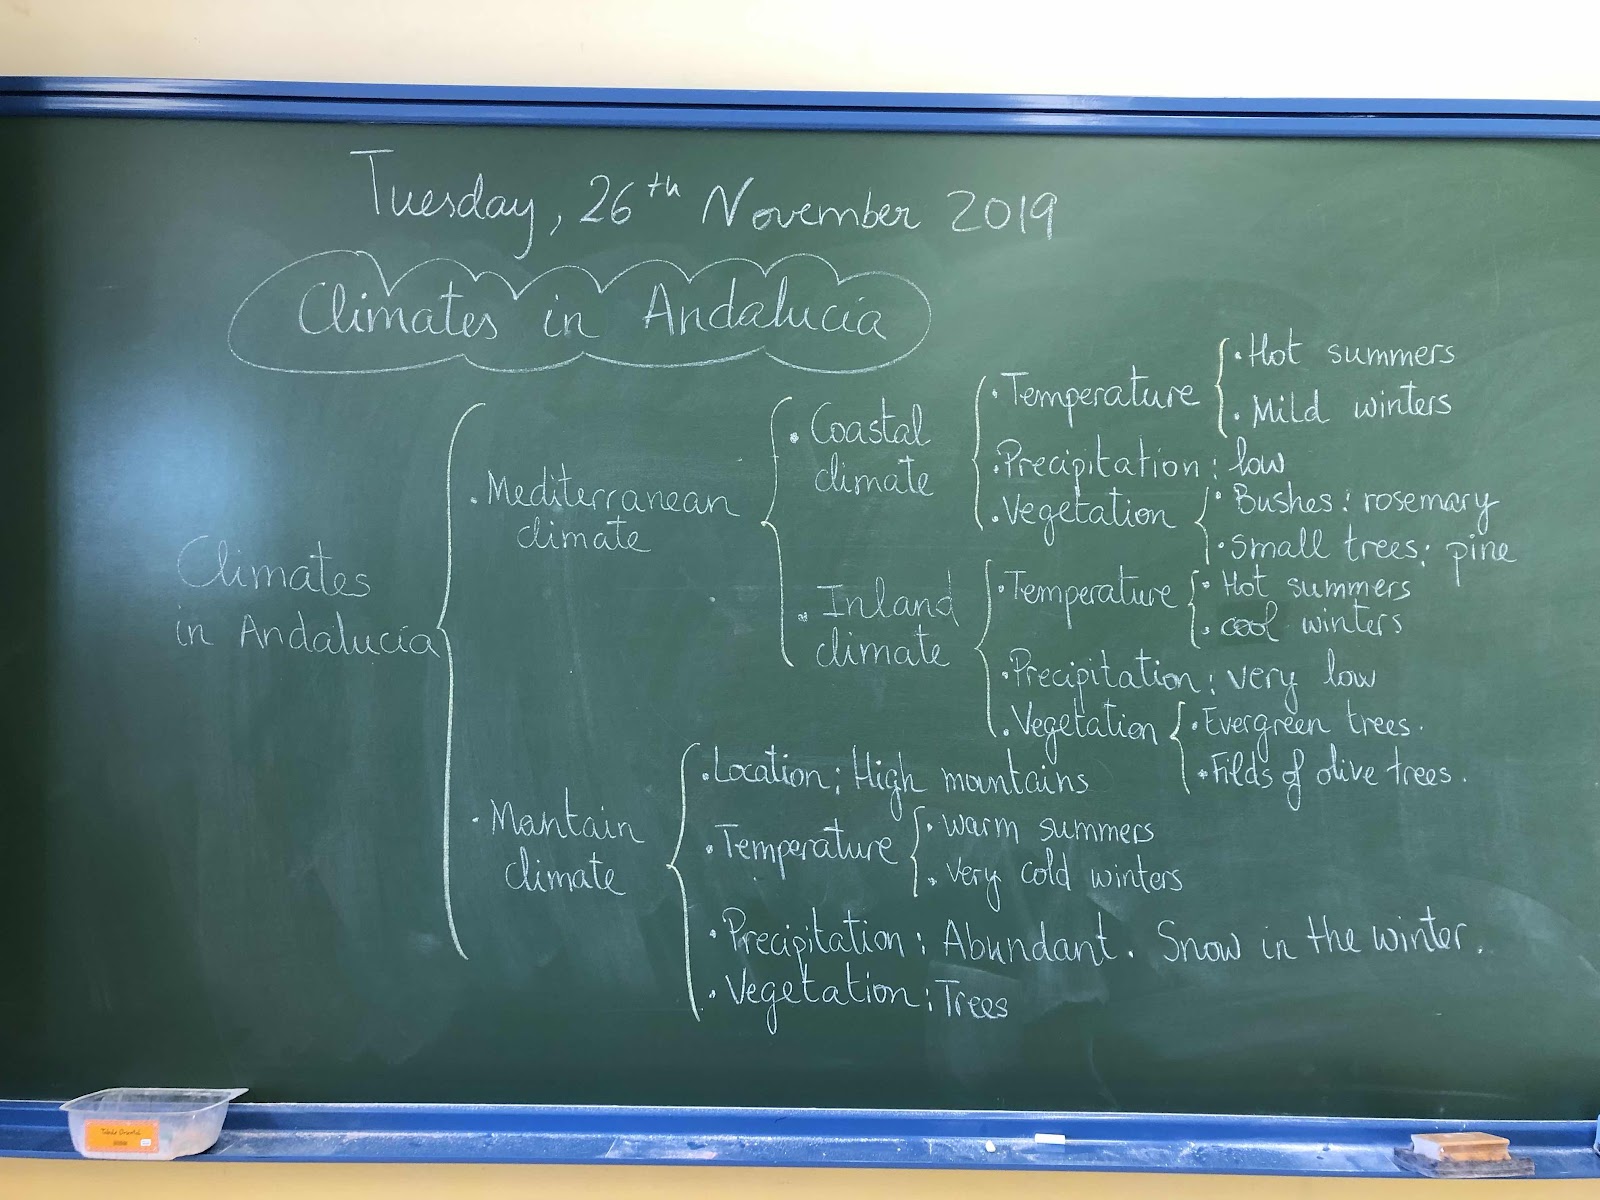 Tuesday, 26th November 2019
Climates in Andalucía
Climates
in Andalucía
· Mediterranean
climate
· Coastal
climate
· Temperature
· Hot summers
· Mild winters
· Precipitation: low
· Vegetation
· Bushes: rosemary
· Small trees: pine
· Inland
climate
· Temperature
· Hot summers
· cool winters
· Precipitation: very low
· Vegetation
· Evergreen trees.
· Filds of olive trees.
· Mantain
climate
· Location: High mountains
· Temperature
· warm summers
· very cold winters
· Precipitation: Abundant. Snow in the winter.
· Vegetation: Trees